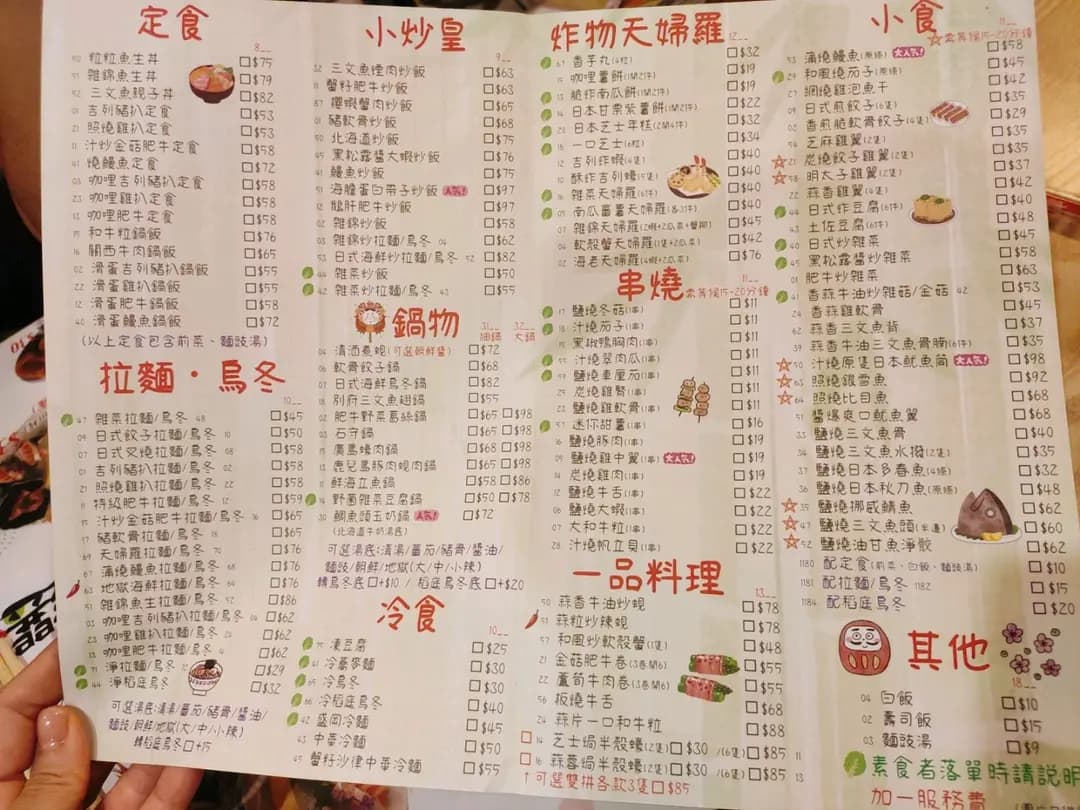 定食
8__
50 粒粒魚生丼 $75
51 雜錦魚生丼 $79
52 三文魚親子丼 $82
01 吉列豬扒定食 $53
21 照燒雞扒定食 $53
11 汁炒金菇肥牛定食 $58
41 燒鰻魚定食 $72
03 咖哩吉列豬扒定食 $58
23 咖哩雞扒定食 $58
13 咖哩肥牛定食 $58
15 和牛粒鍋飯 $76
16 關西牛肉鍋飯 $65
02 滑蛋吉列豬扒鍋飯 $55
22 滑蛋雞扒鍋飯 $55
12 滑蛋肥牛鍋飯 $58
40 滑蛋鰻魚鍋飯 $72
(以上定食包含前菜、麵豉湯)
拉麵·烏冬
10__
47 雜菜拉麵/烏冬 48 $45
09 日式餃子拉麵/烏冬 10 $50
07 日式叉燒拉麵/烏冬 08 $58
01 吉列豬扒拉麵/烏冬 02 $58
21 照燒雞扒拉麵/烏冬 22 $58
11 特級肥牛拉麵/烏冬 12 $59
15 汁炒金菇肥牛拉麵/烏冬 16 $65
17 豬軟骨拉麵/烏冬 18 $65
69 天婦羅拉麵/烏冬 70 $76
67 蒲燒鰻魚拉麵/烏冬 68 $76
63 地獄海鮮拉麵/烏冬 64 $76
51 雜錦魚生拉麵/烏冬 52 $86
03 咖哩吉列豬扒拉麵/烏冬 04 $62
23 咖哩雞扒拉麵/烏冬 24 $62
13 咖哩肥牛拉麵/烏冬 $62
71 淨拉麵/烏冬 $29
44 淨稻庭烏冬 $32
可選湯底:清湯/番茄/豬骨/醬油/
麵豉/朝鮮/地獄(大/中/小辣)
轉稻庭烏冬+15
小炒皇
32 三文魚煙肉炒飯 $63
11 蟹籽肥牛炒飯 $63
87 櫻蝦蟹肉炒飯 $65
01 豬軟骨炒飯 $68
50 北海道炒飯 $75
45 黑松露醬大蝦炒飯 $76
41 鰻魚炒飯 $75
51 海膽蛋白帶子炒飯 人氣! $97
12 龍肝肥牛炒飯 $97
02 雜錦炒飯 $58
03 雜錦炒拉麵/烏冬 04 $62
53 日式海鮮炒拉麵/烏冬 52 $82
44 雜菜炒飯 $50
42 雜菜炒拉麵/烏冬 43 $55
鍋物
31__ 細鍋 32__ 大鍋
04 清酒煮蜆(可選朝鮮醬) $72
06 軟骨餃子鍋 $68
07 日式海鮮烏冬鍋 $82
01 別府三文魚翅鍋 $55
02 肥牛野菜葛絲鍋 $65 $98
03 石守鍋 $68 $98
15 廣島蠔肉鍋 $68 $98
13 鹿兒島豚肉蜆肉鍋 $65 $98
11 鮮海立魚鍋 $58 $86
14 野菌雜菜豆腐鍋 $50 $78
30 鯛魚頭玉奶鍋 人氣! $72
(北海道牛奶湯底)
可選湯底:清湯/番茄/豬骨/醬油/
麵豉/朝鮮/地獄(大/中/小辣)
轉烏冬底+$10 / 稻庭烏冬底+$20
冷食
10__
75 凍豆腐 $25
41 冷蕎麥麵 $30
65 冷烏冬 $30
66 冷稻庭烏冬 $40
42 盛岡冷麵 $45
43 中華冷麵 $50
45 蟹籽沙律中華冷麵 $55
炸物天婦羅
12__
67 香芋丸(4粒) $32
15 咖哩薯餅(1開2件) $19
13 脆炸南瓜餅(1開2件) $19
14 日本甘栗紫薯餅(1開2件) $22
20 日本芝士年糕(2開4件) $32
18 一口芝士(6粒) $34
12 吉列炸蝦(4隻) $40
10 酥炸吉列蠔(5隻) $40
16 雜菜天婦羅(6件) $40
09 南瓜番薯天婦羅(各3件) $40
07 雜錦天婦羅 $45
04 軟殼蟹天婦羅 $42
02 海老天婦羅 $76
串燒
需等候15-20分鐘
11__
17 鹽燒冬菇(1串) $11
18 汁燒茄子(1串) $11
15 黑椒鴨胸肉(1串) $11
55 汁燒翠肉瓜(1串) $11
59 鹽燒車厘茄(1串) $11
25 炭燒雞腎(1串) $11
23 鹽燒雞軟骨(1串) $11
57 迷你甜薯(1串) $16
16 鹽燒豚肉(1串) $19
09 鹽燒雞中翼(1串) 大人氣! $19
14 炭燒雞肉(1串) $19
12 鹽燒牛舌(1串) $22
06 鹽燒大蝦(1串) $22
07 大和牛粒(1串) $22
28 汁燒帆立貝(1串) $22
一品料理
13__
50 蒜香牛油炒蜆 $78
51 蒜粒炒辣蜆 $78
57 和風炒軟殼蟹(1隻) $48
21 金菇肥牛卷(3卷開6) $55
22 蘆筍牛肉卷(3卷開6) $55
56 板燒牛舌 $68
24 蒜片一口和牛粒 $88
14 芝士焗半殼蠔(2隻)$30 /(6隻)$85 11
16 蒜蓉焗半殼蠔(2隻)$30 /(6隻)$85 13
↑可選雙拼各款3隻$85
小食
11__
需等候15-20分鐘
53 蒲燒鰻魚(原條) 大人氣! $58
29 和風茄子(原條) $45
27 網燒雞泡魚干 $42
09 日式煎餃子(6隻) $35
02 香煎脆軟骨餃子(4隻) $29
54 芝麻雞翼(2隻) $35
21 炭燒餃子雞翼(2隻) $35
58 明太子雞翼(2隻) $37
22 蒜香雞翼(4隻) $42
44 日式炸豆腐(6件) $40
43 土佐豆腐(6件) $48
40 日式炒雜菜 $45
45 黑松露醬炒雜菜 $58
01 肥牛炒雜菜 $63
41 香蒜牛油炒雜菇/金菇 42 $53
24 香蒜雞軟骨 $45
62 蒜香三文魚背 $37
39 蒜香牛油三文魚骨腩(6件) $35
50 汁燒原隻日本魷魚筒 大人氣! $98
63 照燒銀雪魚 $92
64 照燒比目魚 $68
51 醬爆爽口魷魚翼 $68
33 鹽燒三文魚骨 $40
34 鹽燒三文魚水撥(2隻) $35
37 鹽燒日本多春魚(4條) $32
36 鹽燒日本秋刀魚(原條) $48
35 鹽燒挪威鯖魚 $62
47 鹽燒三文魚頭(半邊) $60
52 鹽燒油甘魚淨骹 $62
1180 配定食(前菜、白飯、麵豉湯) $10
1181 配拉麵/烏冬 1182 $15
1184 配稻庭烏冬 $20
其他
18__
04 白飯 $10
02 壽司飯 $15
03 麵豉湯 $9
素食者落單時請說明
加一服務費